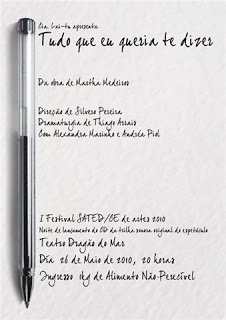 Cia. Lai-tu apresenta
Tudo que eu queria te dizer
Da obra de Martha Medeiros
Direção de Silvero Pereira
Dramaturgia de Thiago Arrais
Com Alexandra Marinho e Andréa Piol
I Festival SATED/CE de artes 2010
Noite de lançamento do CD da trilha sonora original do espetáculo
Teatro Dragão do Mar
Dia 26 de Maio de 2010, 20 horas
Ingresso 1kg de Alimento Não-Perecível